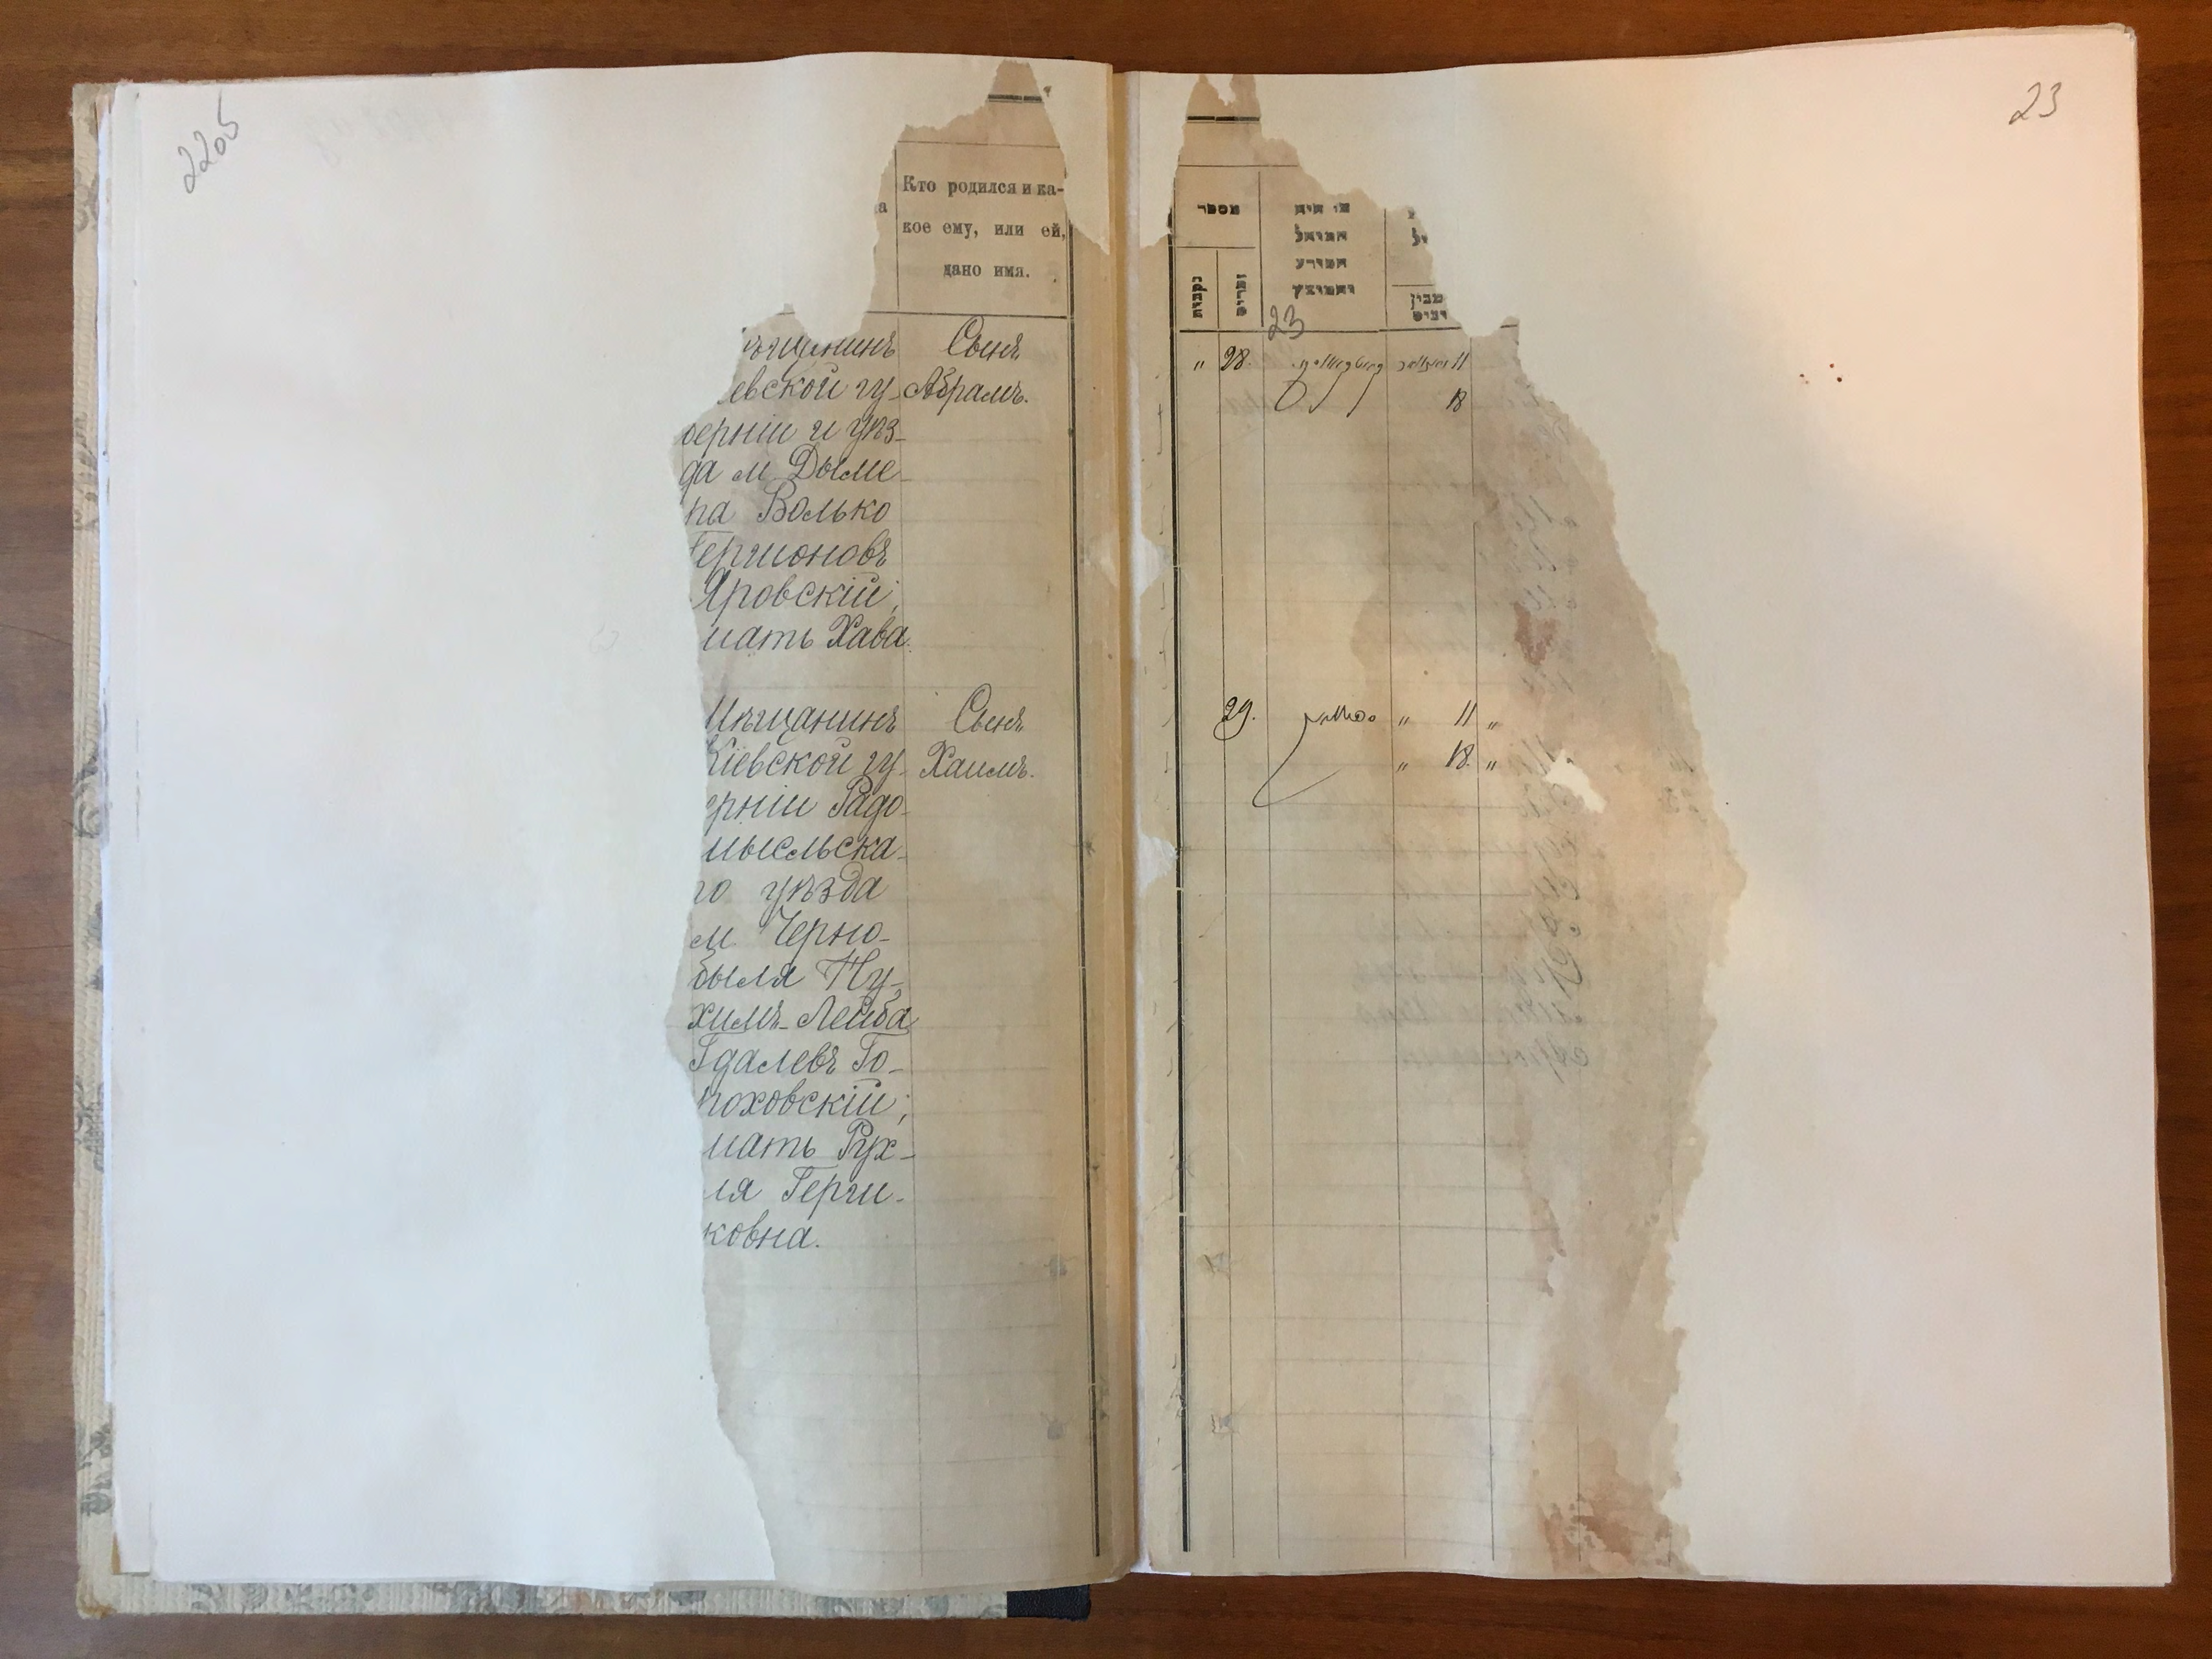 22об
Кто родился и ка-
кое ему, или ей,
дано имя.
ѣщанинъ
евской гу-
берніи и уѣз-
да м Дыме-
ра Волько
Гершоновъ
Яровскій;
мать Хава.
Сынъ
Абрамъ.
Мѣщанинъ
Кіевской гу-
ерніи Радо-
мысльска-
го уѣзда
м. Черно-
быля Ну-
химъ-Лейба
Гдалевъ Го-
роховскій;
мать Рух-
ля Герш-
ковна.
Сынъ
Хаимъ.
23
מספר
מי היה
המוהל
והמוצץ
נקבות
זכרים
23
" 28. 11
18
29. " 11 "
" 18. "